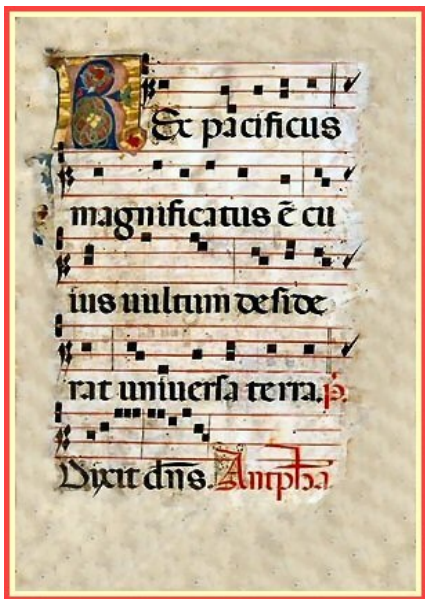 Rex pacificus
magnificatus ē cu
ius uultum deside
rat uniuersa terra. p̄.
Dixit dn̄s. Antipha